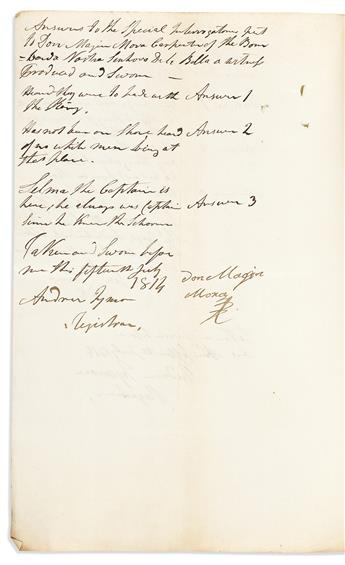 Answers to the Special Interrogatories put
to Don Magin Mora Carpenter of the Bom
=barda Nostra Senhora De la Bella a witness
Produced and Sworn —
Heard they were to trade with Answer 1
the King.
Has not been on Shore heard Answer 2
of no white men being at
this place.
Selma the Captain is
here, he always was Captain Answer 3
since he knew the Schooner
Taken and Sworn before
me this fifteenth July
1814
Andrew
Registrar,
Don Magin
Mora